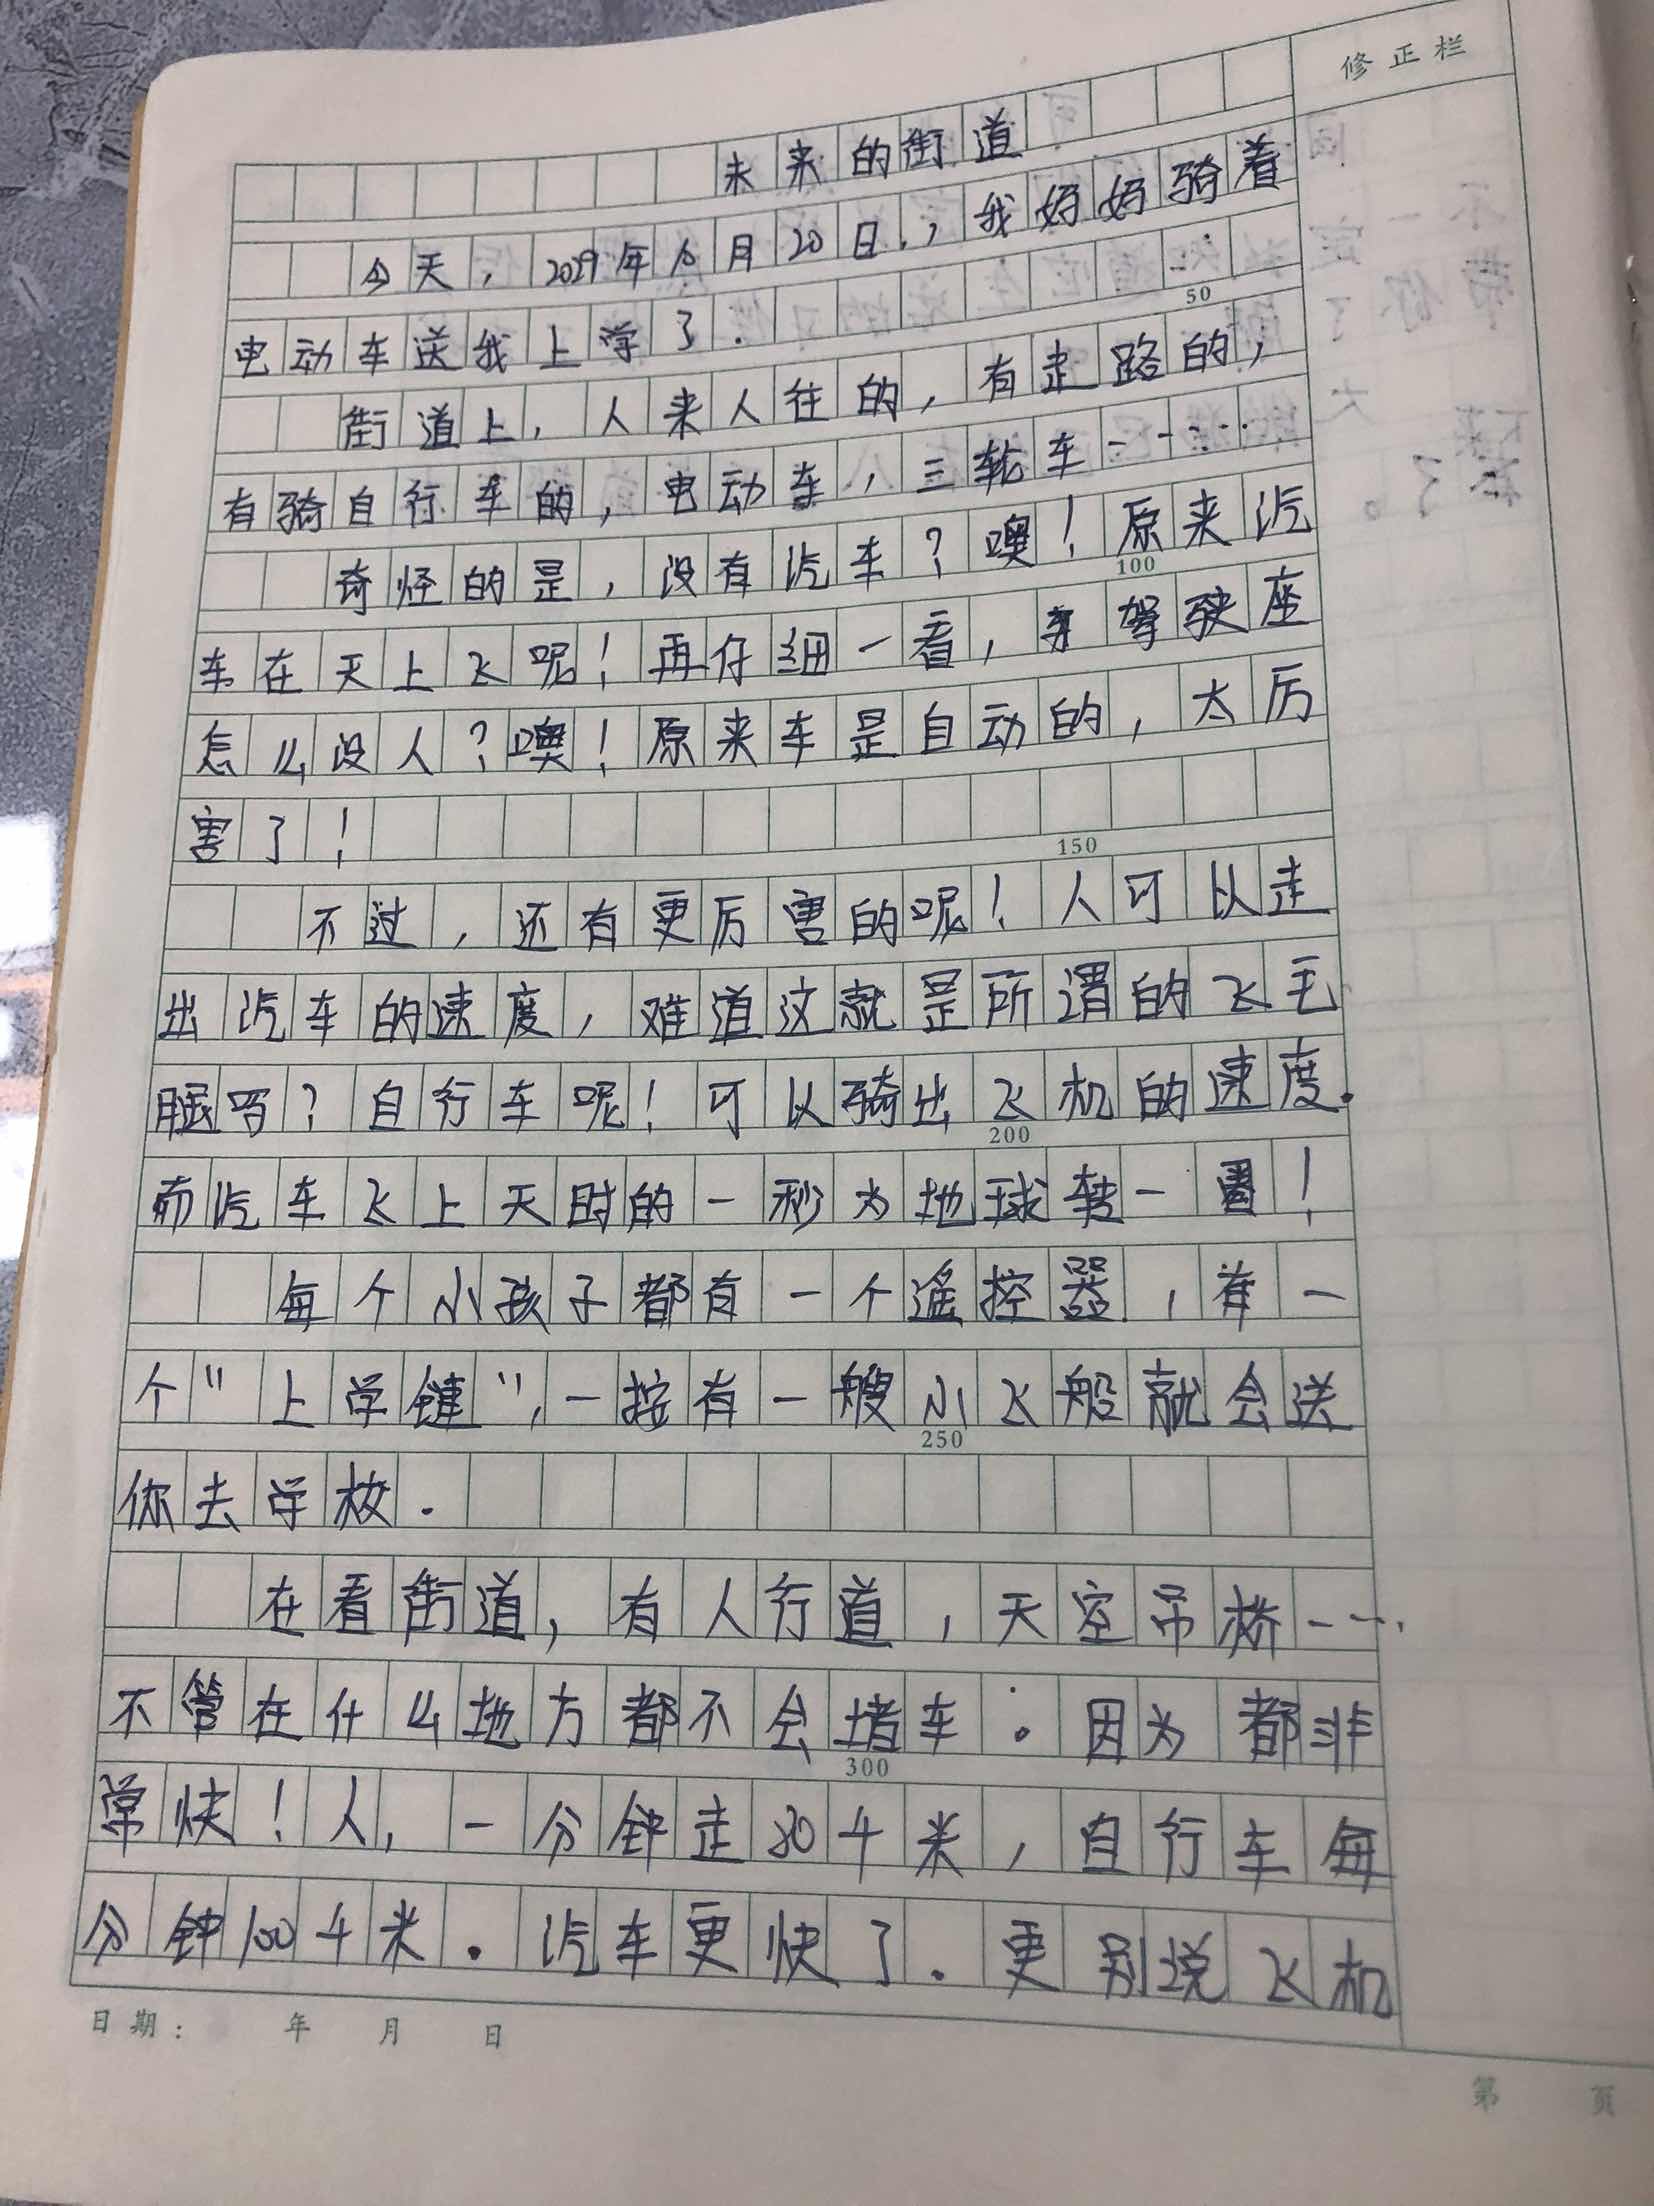 修正栏
未来的街道
今天，2029年10月20日，我妈妈骑着
50
电动车送我上学了.
街道上，人来人往的，有走路的，
有骑自行车的，电动车，三轮车……
奇怪的是，没有汽车？噢！原来汽
100
车在天上飞呢！再仔细一看，驾驶座
怎么没人？噢！原来车是自动的，太厉
害了！
150
不过，还有更厉害的呢！人可以走
出汽车的速度，难道这就是所谓的飞毛
腿吗？自行车呢！可以骑出飞机的速度.
200
而汽车飞上天时的一秒为地球转一圈！
每个小孩子都有一个遥控器，有一
个"上学键"，一按有一艘小飞船就会送
250
你去学校.
在看街道，有人行道，天空吊桥……
不管在什么地方都不会堵车。因为都非
300
常快！人，一分钟走30千米，自行车每
分钟100千米.汽车更快了.更别说飞机
日期： 年 月 日
第 页